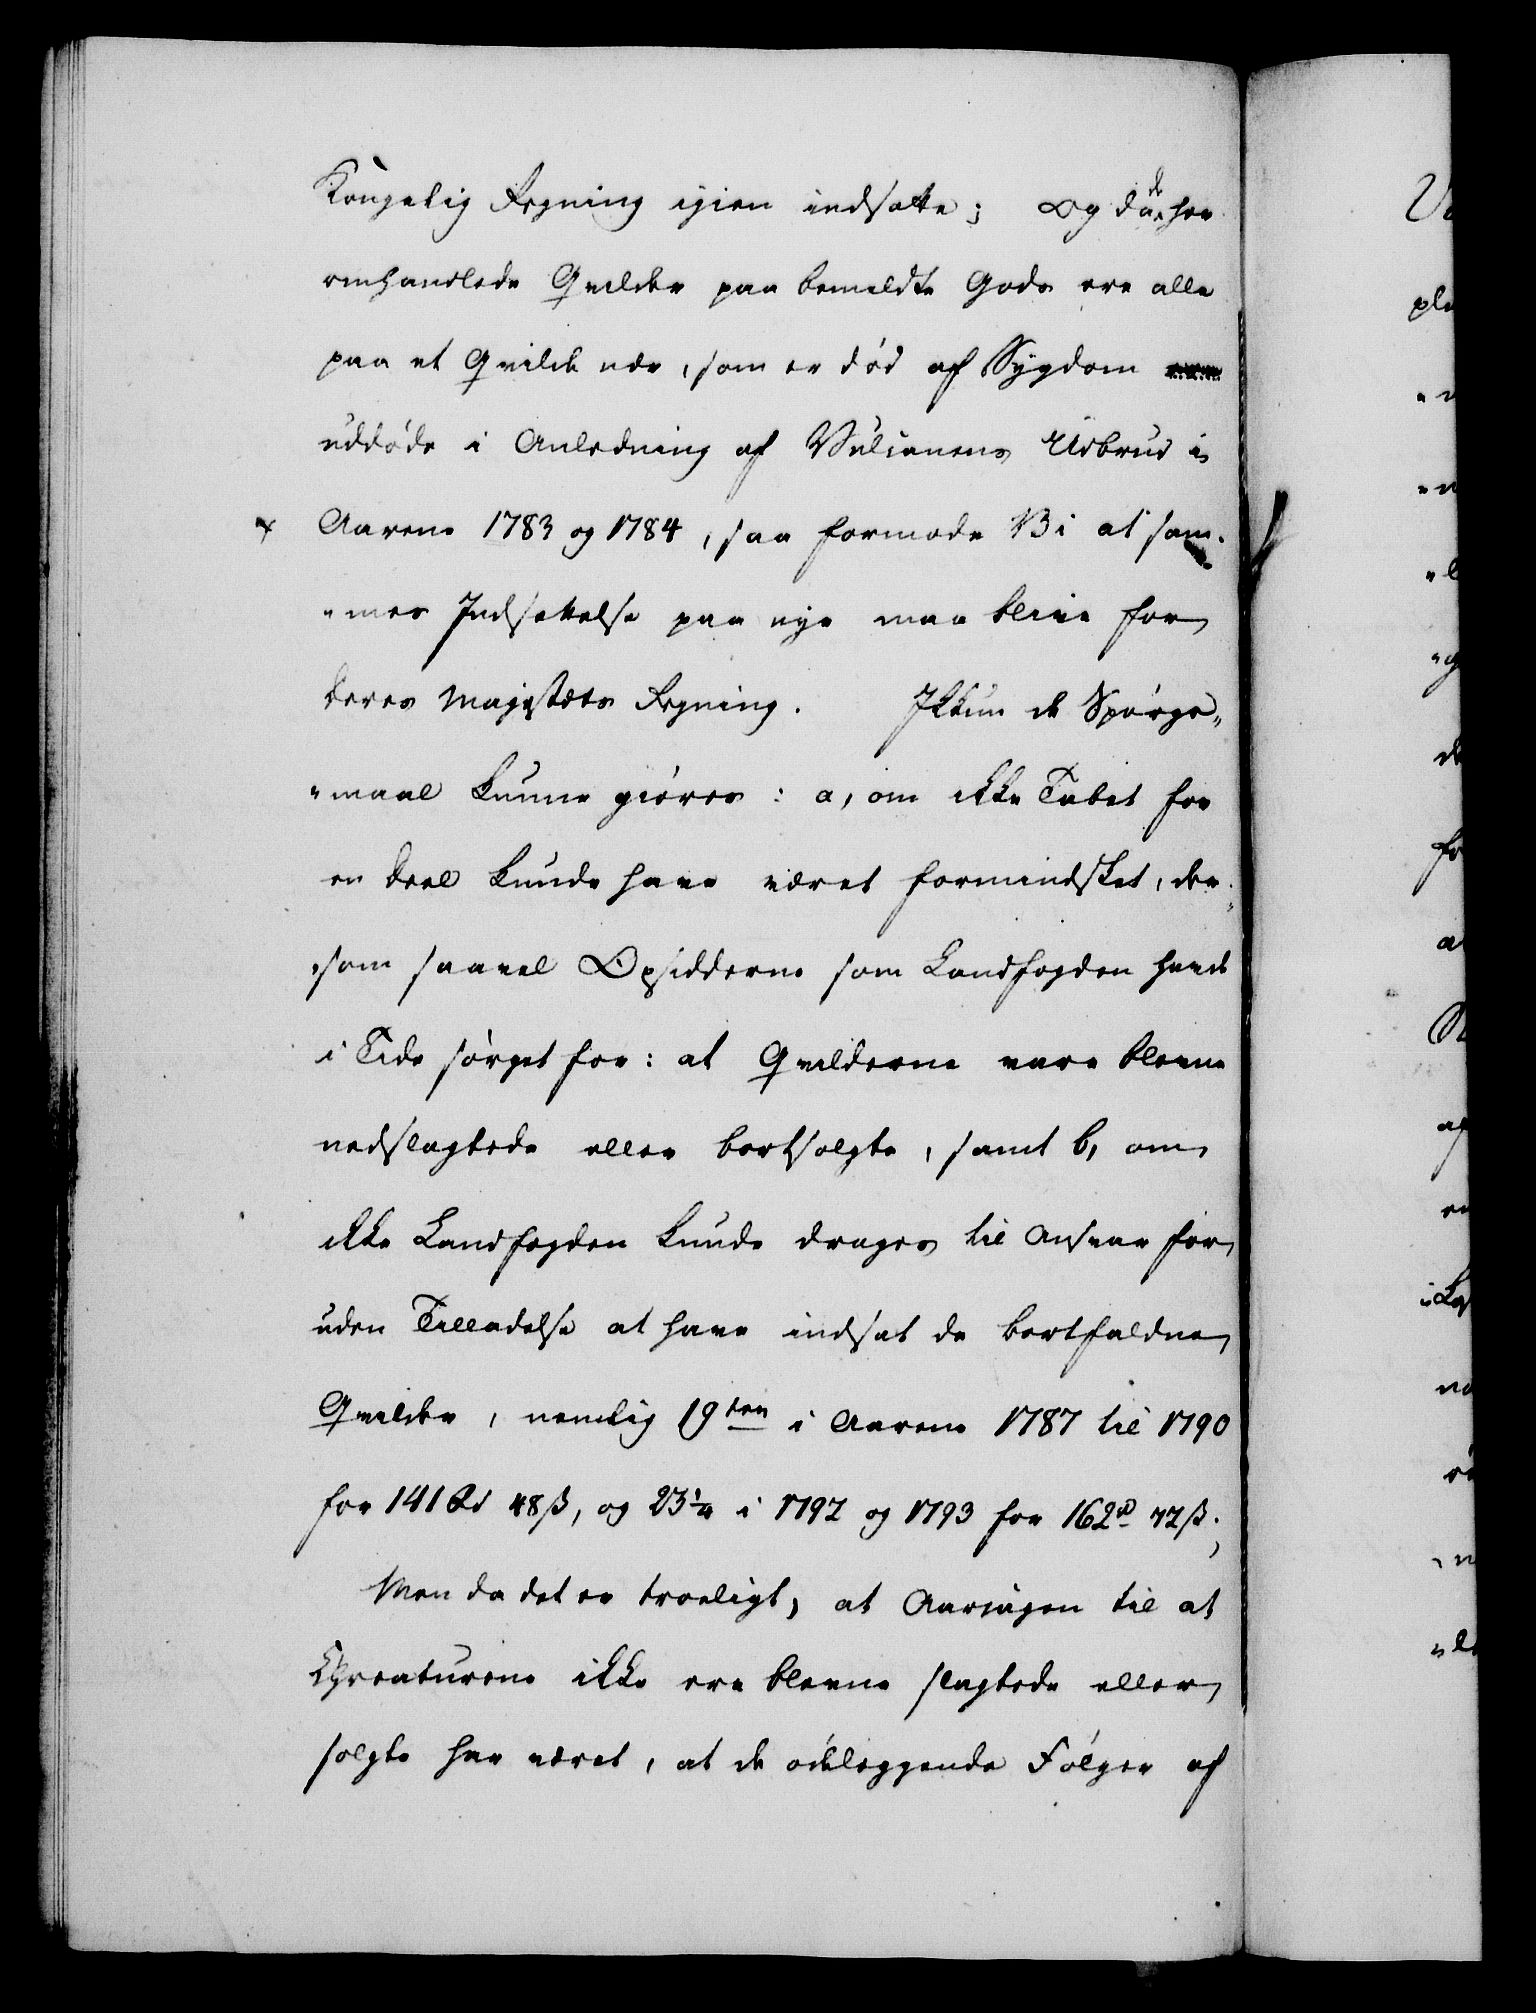 Kongelig Regning igien indsatte; og da de her
omhandlede Qvilder paa bemeldte Gods ere alle
paa et Qvilde nær, som er død af Sygdom
uddøde i Anledning af Vulcanens Udbrud i
Aarene 1783 og 1784, saa formode Vi at sam-
"mes Indsættelse paa nye maa blive for
Deres Majestæts Regning. Ikkun de Spørgs-
"maal kunne giøres: a, om ikke Tabet for
en Deel kunde have været formindsket, der-
"som saavel Opsidderne som Landfogden havde
i Tide sørget for: at Qvilderne vare blevne
nedslagtede eller bortsolgte, samt b, om
ikke Landfogden kunde drages til Ansvar for
uden Tilladelse at have indsat de bortfaldne
Qvilder, nemlig 19ten i Aarene 1787 til 1790
for 141 Rd 48 ß, og 23¼ i 1792 og 1793 for 162 rd 72 ß;
Men da det er troeligt, at Aarsagen til at
Creaturene ikke ere blevne slagtede eller
solgte har været, at de ødeleggende Følger af